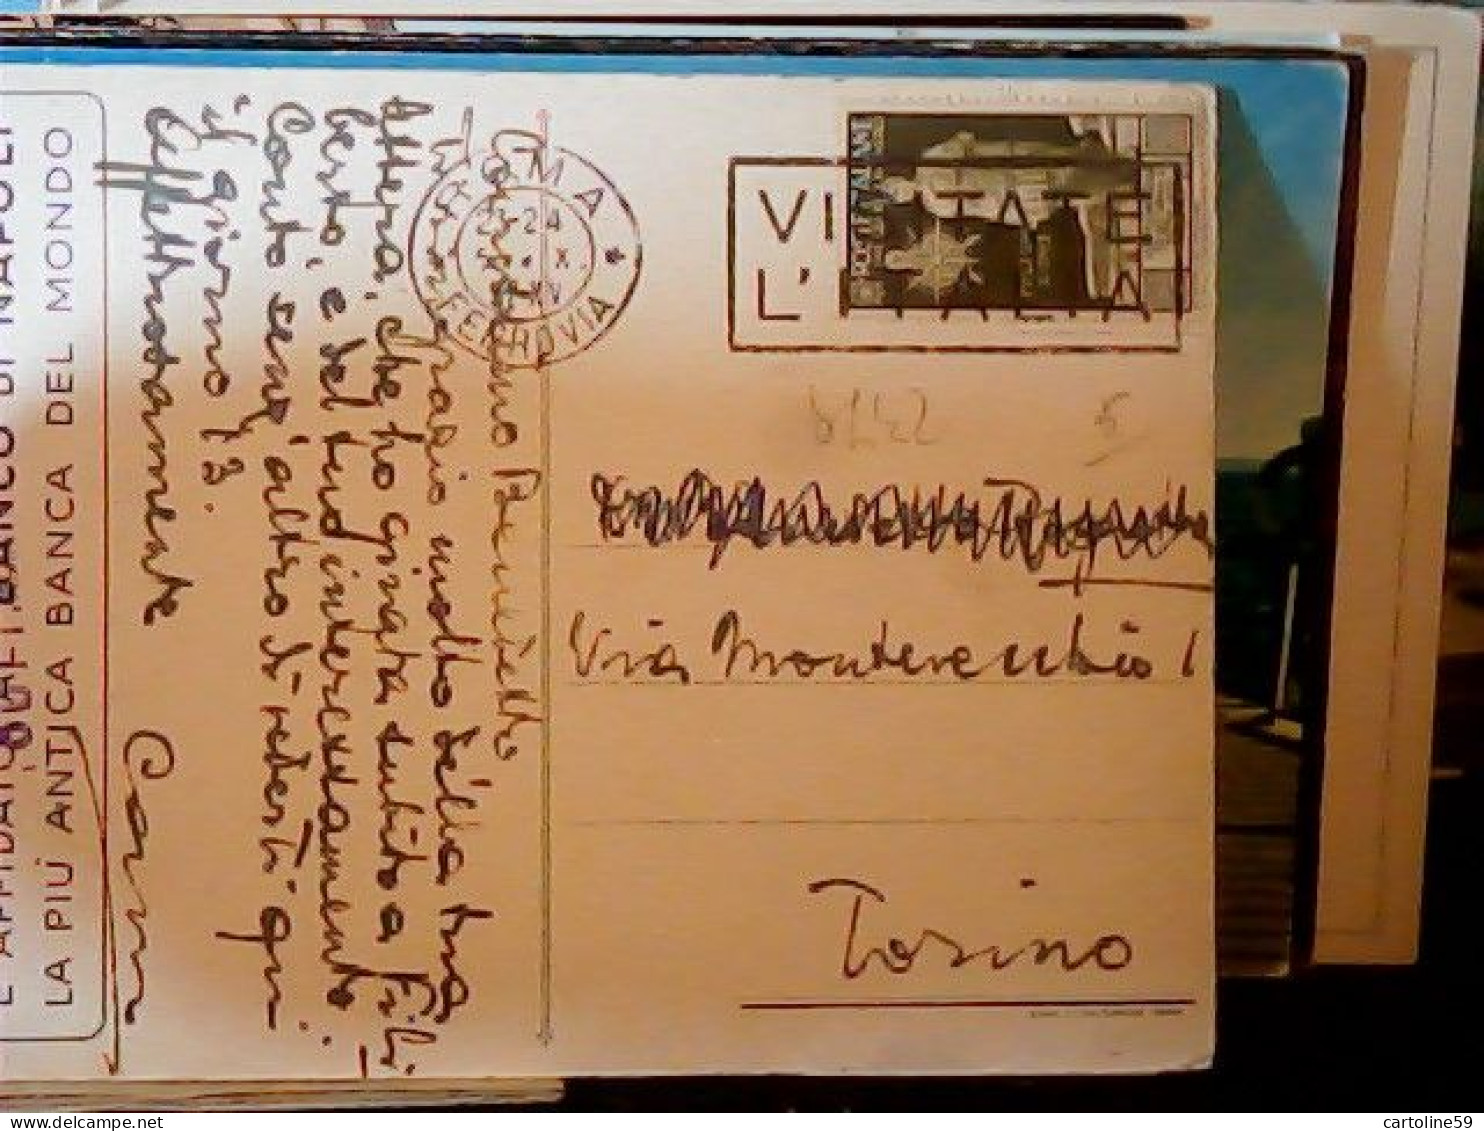 È AFFIDATO AL BANCO DI NAPOLI
LA PIÙ ANTICA BANCA DEL MONDO
Carissimo Benedetto
Ti ringrazio molto della tua
lettera, che ho girata subito a Fili-
berto, e del tuo interessamento.
Conto senz'altro di vederti qui
il giorno 13.
Affettuosamente
ROMA
FERROVIA
24
X
XIV
VISITATE
L'ITALIA
POSTE ITALIANE
Via Montevecchio 1
Torino
cartoline59